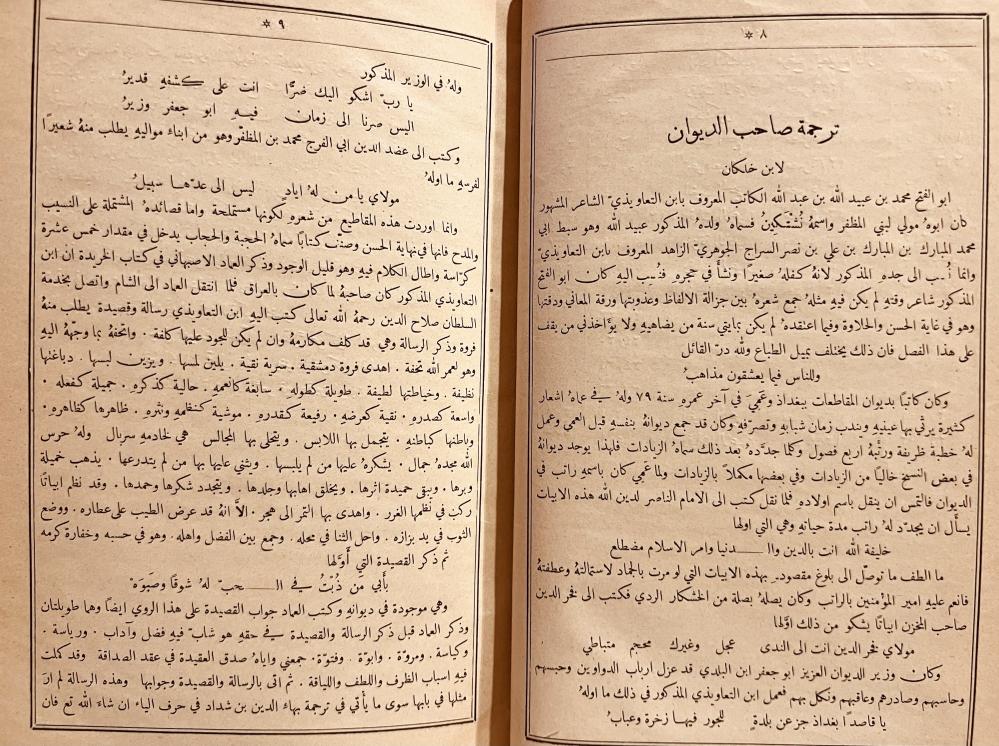 * ٨
ترجمة صاحب الديوان
لابن خلكان
ابو الفتح محمد بن عبيد الله بن عبد الله الكاتب المعروف بابن التعاويذيّ الشاعر المشهور
كان ابوهُ مولى لبني المظفر واسمهُ نُشتكينُ فسماهُ ولدهُ المذكور عبيد الله وهو سبط ابي
محمد المبارك بن المبارك بن علي بن نصر السراج الجوهريّ الزاهد المعروف بابن التعاويذيّ
وانما نُسب الى جده المذكور لانهُ كفلهُ صغيرًا ونشأ في حجره فنُسب اليهِ كان ابو الفتح
المذكور شاعر وقتهِ لم يكن فيهِ مثلهُ جمع شعرهُ بين جزالة الالفاظ وعذوبتها ورقة المعاني ودقتها
وهو في غاية الحسن والحلاوة وفيما اعتقدهُ لم يكن بمايتي سنة من يضاهيهِ ولا يؤاخذني من يقف
على هذا الفصل فان ذلك يختلف بميل الطباع ولله درّ القائل
وللناس فيما يعشقون مذاهبُ
وكان كاتبًا بديوان المقاطعات ببغداذ وعَمِيَ في آخر عمرهِ سنة ٧٩ ولهُ في عماهُ اشعار
كثيرة يرثي بها عينيهِ ويندب زمان شبابهِ وتصرّفهِ وكان قد جمع ديوانهُ بنفسهِ قبل العمى وعمل
لهُ خطبة ظريفة ورتّبهُ اربع فصول وكلما جدّدهُ بعد ذلك سماهُ الزيادات فلهذا يوجد ديوانهُ
في بعض النسخ خاليًا من الزيادات وفي بعضها مكملًا بالزيادات ولما عَمي كان باسمهِ راتب في
الديوان فالتمس ان ينقل باسم اولادهِ فلما نقل كتب الى الامام الناصر لدين الله هذه الابيات
يسأل ان يجدّد لهُ راتب مدة حياتهِ وهي التي اولها
خليفة الله انت بالدين والـــدنيا وامر الاسلام مضطلع
ما الطف ما توصّل الى بلوغ مقصودهِ بهذه الابيات التي لو مرت بالجماد لاستمالتهُ وعطفتهُ
فانعم عليهِ امير المؤمنين بالراتب وكان يصلهُ بصلة من الخشكار الردي فكتب الى فخر الدين
صاحب المخزن ابياتًا يشكو من ذلك اوّلها
مولاي فخر الدين انت الى الندى عجل وغيرك محجم متباطي
وكان وزير الديوان العزيز ابو جعفر ابن البلدي قد عزل ارباب الدواوين وحبسهم
وحاسبهم وصادرهم وعاقبهم ونكل بهم فعمل ابن التعاويذي المذكور في ذلك ما اولهُ
يا قاصدًا بغداذ جز عن بلدةٍ للجور فيها زخرة وعبابُ
* ٩
ولهُ في الوزير المذكور
يا ربّ اشكو اليك ضرًّا انت على كشفهِ قديرُ
اليس صرنا الى زمان فيهِ ابو جعفر وزيرُ
وكتب الى عضد الدين ابي الفرج محمد بن المظفر وهو من ابناء مواليهِ يطلب منهُ شعيرًا
لفرسهِ ما اولهُ
مولاي يا من لهُ ايادٍ ليس الى عدّها سبيلُ
وانما اوردت هذه المقاطيع من شعرهِ لكونها مستملحة واما قصائدهُ المشتملة على النسيب
والمدح فانها في نهاية الحسن وصنف كتابًا سماهُ الحجبة والحجاب يدخل في مقدار خمس عشرة
كرّاسة واطال الكلام فيهِ وهو قليل الوجود وذكر العماد الاصبهاني في كتاب الخريدة ان ابن
التعاويذي المذكور كان صاحبهُ لما كان بالعراق فلما انتقل العماد الى الشام واتصل بخدمة
السلطان صلاح الدين رحمهُ الله تعالى كتب اليهِ ابن التعاويذي رسالة وقصيدة يطلب منهُ
فروة وذكر الرسالة وهي قد كلف مكارمهُ وان لم يكن للجود عليها كلفة . واتحفهُ بما وجّههُ اليهِ
وهو لعمر الله تحفة . اهدى فروة دمشقية . سرية نقية . يلين لمسها . ويزين لبسها . دباغتها
نظيفة . وخياطتها لطيفة . طويلة كطولهِ . سابغة كانعمهِ . حالية كذكرهِ . جميلة كفعلهِ .
واسعة كصدرهِ . نقية كعرضهِ . رفيعة كقدرهِ . موشية كنظمهِ ونثرهِ . ظاهرها كظاهرهِ .
وباطنها كباطنهِ . يتجمل بها اللابس . ويتحلى بها المجالس هي لخادمهِ سربال ولهُ حرس
الله مجدهُ جمال . يشكرهُ عليها من لم يلبسها . ويثني عليها بها من لم يتدرعها . يذهب خميلة
وبرها . ويبقى حميدة اثرها . ويخلق اهابها وجلدها . ويتجدد شكرها وحمدها . وقد نظم ابياتًا
ركبَت في نظمها الغرر . واهدى بها التمر الى هجر . الاَّ انهُ قد عرض الطيب على عطاره . ووضع
الثوب في يد بزازه . واحل الثنا في محله . وجمع بين الفضل واهله . وهو في حسبه وخفارة كرمه
ثم ذكر القصيدة التي أوّلها
بأَبي مَن ذُبْتُ في الـــحبّ لهُ شوقًا وصَبوَه
وهي موجودة في ديوانهِ وكتب العماد جواب القصيدة على هذا الروي ايضًا وهما طويلتان
وذكر العماد قبل ذكر الرسالة والقصيدة في حقهِ هو شابّ فيهِ فضل وآداب . ورياسة .
وكياسة . ومروّة . وابوّة . وفتوّة . جمعني واياهُ صدق العقيدة في عقد الصداقة وقد كملت
فيهِ اسباب الظرف واللطف واللياقة . ثم اتى بالرسالة والقصيدة وجوابها وهذه الرسالة لم ارَ
مثلها في بابها سوى ما يأتي في ترجمة بهاء الدين بن شداد في حرف الياء ان شاء الله تع فان